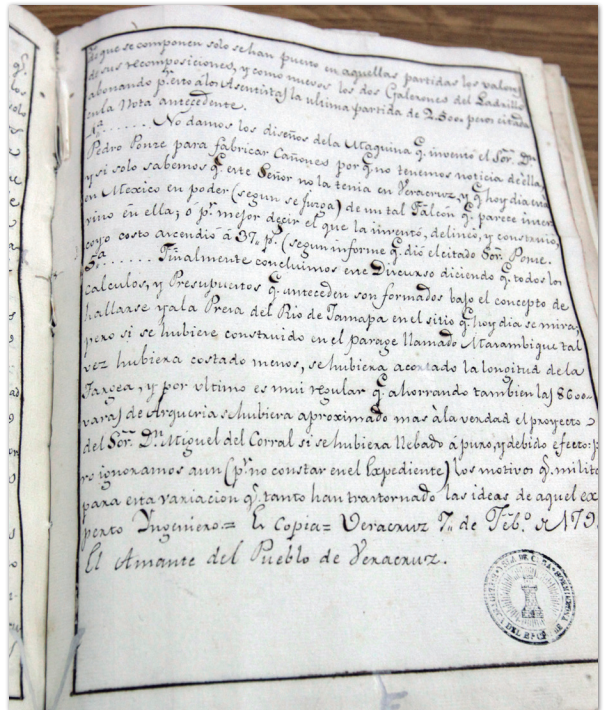 de que se componen solo se han puesto en aquellas partidas los valores
de sus recomposiciones, y como nuevos los dos Galerones del Ladrillo
abonando pr. esto álos Asentistas la ultima partida de 2.500. pesos citada
enla Nota antecedente.
4.a ...... No damos los diseños dela Maquina q. inventó el Sor. Dn.
Pedro Ponze para fabricar Cañones por q. no tenemos noticia de ella,
y si solo sabemos q. este Señor no la tenia en Veracruz, y q. hoy dia está
en Mexico en poder (segun se juzga) de un tal Falcón q. parece inter
vino en ella; ó pr. mejor decir el que la inventó, delineó, y construió,
cuyo costo ascendió á 37. ps. (segun informe q. dió el citado Sor. Ponze.
5.a ...... Finalmente concluimos este Discurso diciendo q. todos los
calculos, y Presupuestos q. anteceden son formados bajo el concepto de
hallarse ya la Presa del Rio de Jamapa en el sitio q. hoy dia se mira;
pero si se hubiere construido en el parage llamado Matambique tal
vez hubiera costado menos, se hubiera acortado la longitud de la
Targea, y por ultimo es mui regular q. ahorrando tambien las 8600-
varas de Arqueria se hubiera aproximado mas àla verdad el proyecto
del Sor. Dn. Miguel del Corral si se hubiera llebado á puro, y debido efecto: p
ro ignoramos aun (pr. no constar en el Expediente) los motivos q. milita
para esta variacion q. tanto han trastornado las ideas de aquel ex
perto Yngeniero.= Es Copia= Veracruz 7,, de Febo. de 179
El Amante del Pueblo de Veracruz.